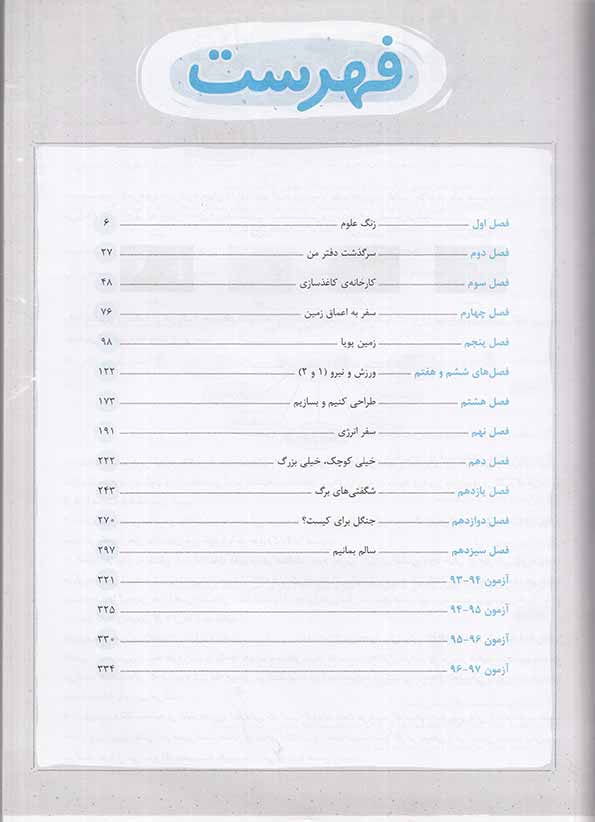 فهرست
فصل اول زنگ علوم ۶
فصل دوم سرگذشت دفتر من ۲۷
فصل سوم کارخانه‌ی کاغذسازی ۴۸
فصل چهارم سفر به اعماق زمین ۷۶
فصل پنجم زمین پویا ۹۸
فصل‌های ششم و هفتم ورزش و نیرو (۱ و ۲) ۱۲۲
فصل هشتم طراحی کنیم و بسازیم ۱۷۳
فصل نهم سفر انرژی ۱۹۱
فصل دهم خیلی کوچک، خیلی بزرگ ۲۲۲
فصل یازدهم شگفتی‌های برگ ۲۴۳
فصل دوازدهم جنگل برای کیست؟ ۲۷۰
فصل سیزدهم سالم بمانیم ۲۹۷
آزمون ۹۴-۹۳ ۳۲۱
آزمون ۹۵-۹۴ ۳۲۵
آزمون ۹۶-۹۵ ۳۳۰
آزمون ۹۷-۹۶ ۳۳۴